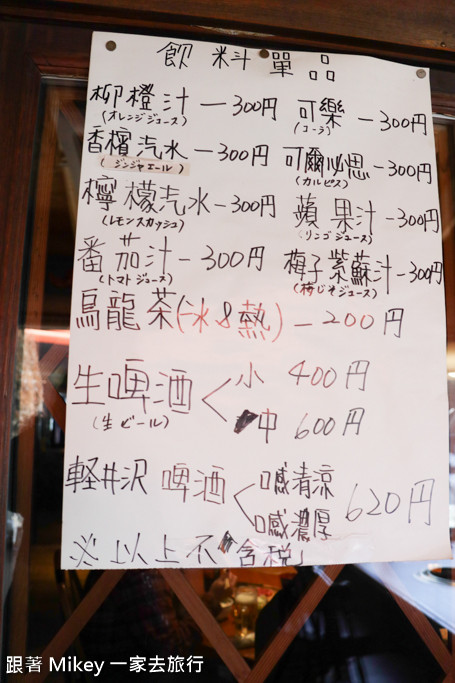 飲料單品
柳橙汁 — 300円
(オレンジジュース)
可樂 — 300円
(コーラ)
香檳汽水 — 300円
(ジンジャエール)
可爾必思 — 300円
(カルピス)
檸檬汽水 — 300円
(レモンスカッシュ)
蘋果汁 — 300円
(リンゴジュース)
番茄汁 — 300円
(トマトジュース)
梅子紫蘇汁 — 300円
(梅じそジュース)
烏龍茶(冰&熱) — 200円
生啤酒 < 小 400円
中 600円
(生ビール)
軽井沢 啤酒 < 口感清涼
口感濃厚
620円
※以上不含税
跟著 Mikey 一家去旅行